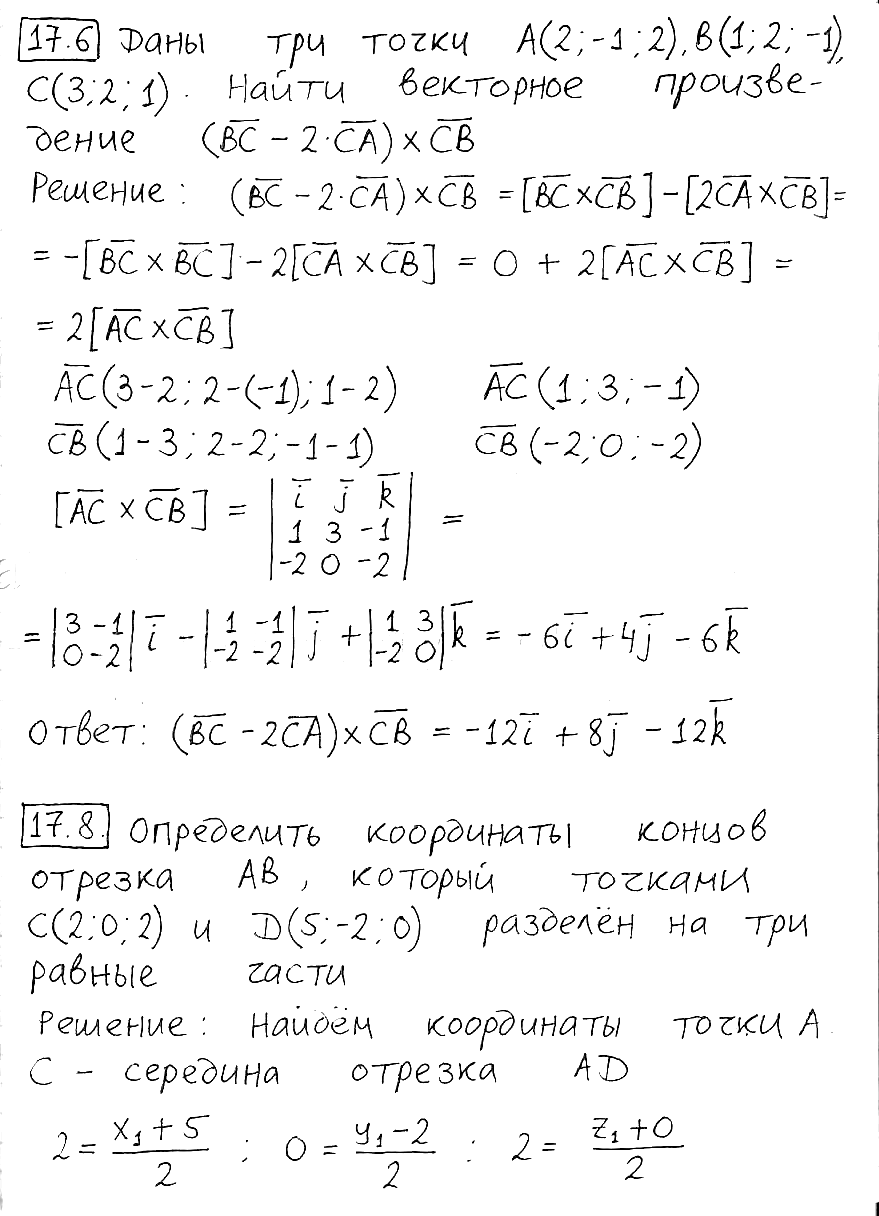 17.6 Даны три точки A(2;-1;2), B(1;2;-1),
C(3;2;1). Найти векторное произве-
дение (B̅C̅ - 2·C̅A̅)×C̅B̅
Решение: (B̅C̅ - 2·C̅A̅)×C̅B̅ = [B̅C̅×C̅B̅] - [2C̅A̅×C̅B̅] =
= -[B̅C̅×B̅C̅] - 2[C̅A̅×C̅B̅] = 0 + 2[A̅C̅×C̅B̅] =
= 2[A̅C̅×C̅B̅]
A̅C̅(3-2; 2-(-1); 1-2) A̅C̅(1; 3; -1)
C̅B̅(1-3; 2-2; -1-1) C̅B̅(-2; 0; -2)
[A̅C̅×C̅B̅] = | i̅ j̅ k̅ |
| 1 3 -1 | =
| -2 0 -2 |
= |3 -1; 0 -2| i̅ - |1 -1; -2 -2| j̅ + |1 3; -2 0| k̅ = -6i̅ + 4j̅ - 6k̅
Ответ: (B̅C̅ - 2C̅A̅)×C̅B̅ = -12i̅ + 8j̅ - 12k̅
17.8. Определить координаты концов
отрезка AB, который точками
C(2;0;2) и D(5;-2;0) разделён на три
равные части
Решение: Найдём координаты точки A.
C - середина отрезка AD
2 = (x₁+5)/2 ; 0 = (y₁-2)/2 ; 2 = (z₁+0)/2